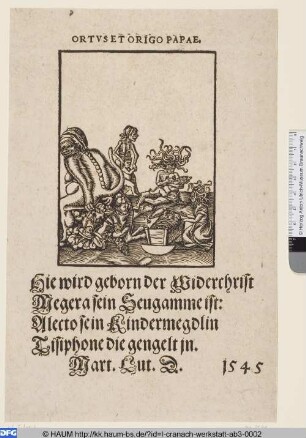 ORTVS ET ORIGO PAPAE.
Hie wird geborn der Widerchrist
Megera sein Seugamme ist:
Alecto sein Kindermegdlin
Tisiphone die gengelt jn.
Mart. Lut. D. 1545
DFG © HAUM http://kk.haum-bs.de/?id=l-cranach-werkstatt-ab3-0002